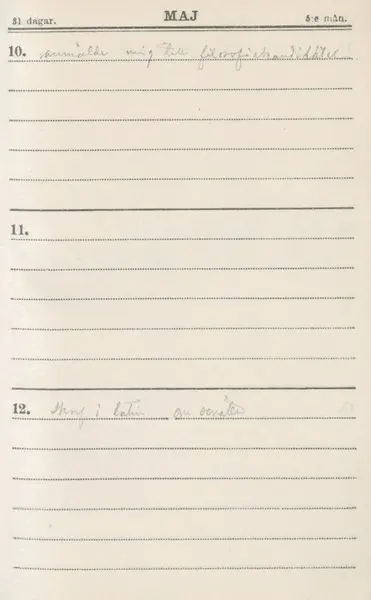 31 dagar. MAJ 5:e mån.
10. anmälde mig till filosofiekandidat
11.
12. Skrof i latin